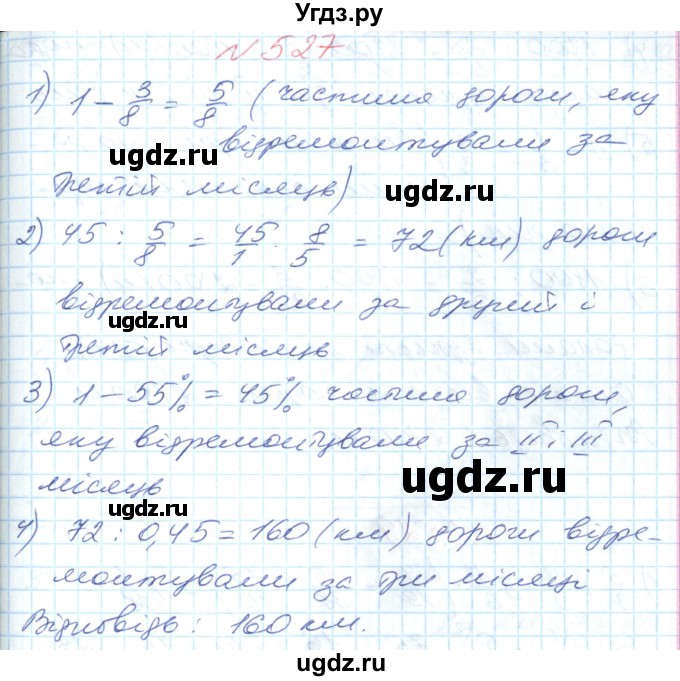 Угдз.ру
N 527
1) 1 - 3/8 = 5/8 (частина дороги, яку
відремонтували за
третій місяць)
2) 45 : 5/8 = 45/1 · 8/5 = 72 (км) дороги
відремонтували за другий і
третій місяць
3) 1 - 55% = 45% частина дороги,
яку відремонтували за II і III
місяць
4) 72 : 0,45 = 160 (км) дороги відре-
монтували за три місяці
Відповідь: 160 км.
ugdz.ru
ugdz.ru
ugdz.ru
ugdz.ru
ugdz.ru
ugdz.ru
ugdz.ru
ugdz.ru
ugdz.ru